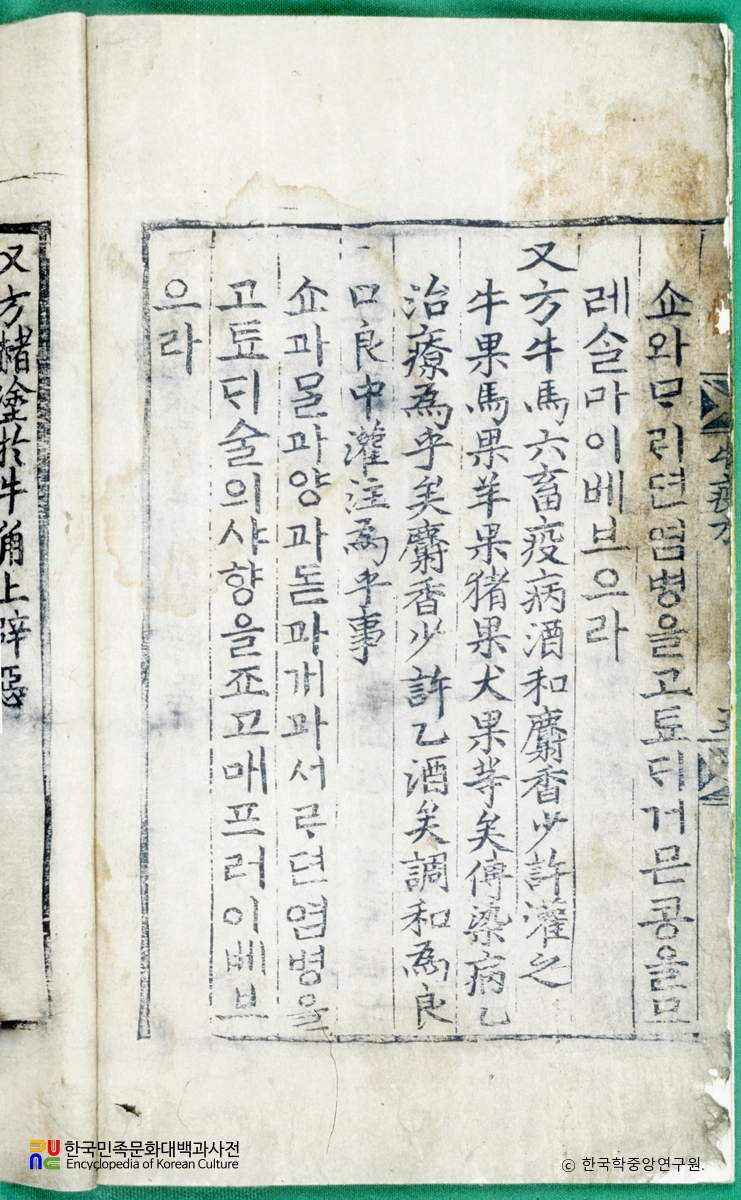 牛疫方
五
쇼와ᄆᆞ리뎐염병을고툐ᄃᆡ거믄콩을므
레솔마이베브으라
又方牛馬六畜疫病酒和麝香少許灌之
牛果馬果羊果猪果犬果等矣傳染病乙
治療爲乎矣麝香少許乙酒矣調和爲良
口良中灌注爲乎事
쇼과ᄆᆞᆯ과양과돋과개과서ᄅᆞ뎐염병을
고툐ᄃᆡ술의샤향을죠고매프러이베브
으라
又方 塗於牛角上辟惡
한국민족문화대백과사전
Encyclopedia of Korean Culture
ⓒ 한국학중앙연구원.